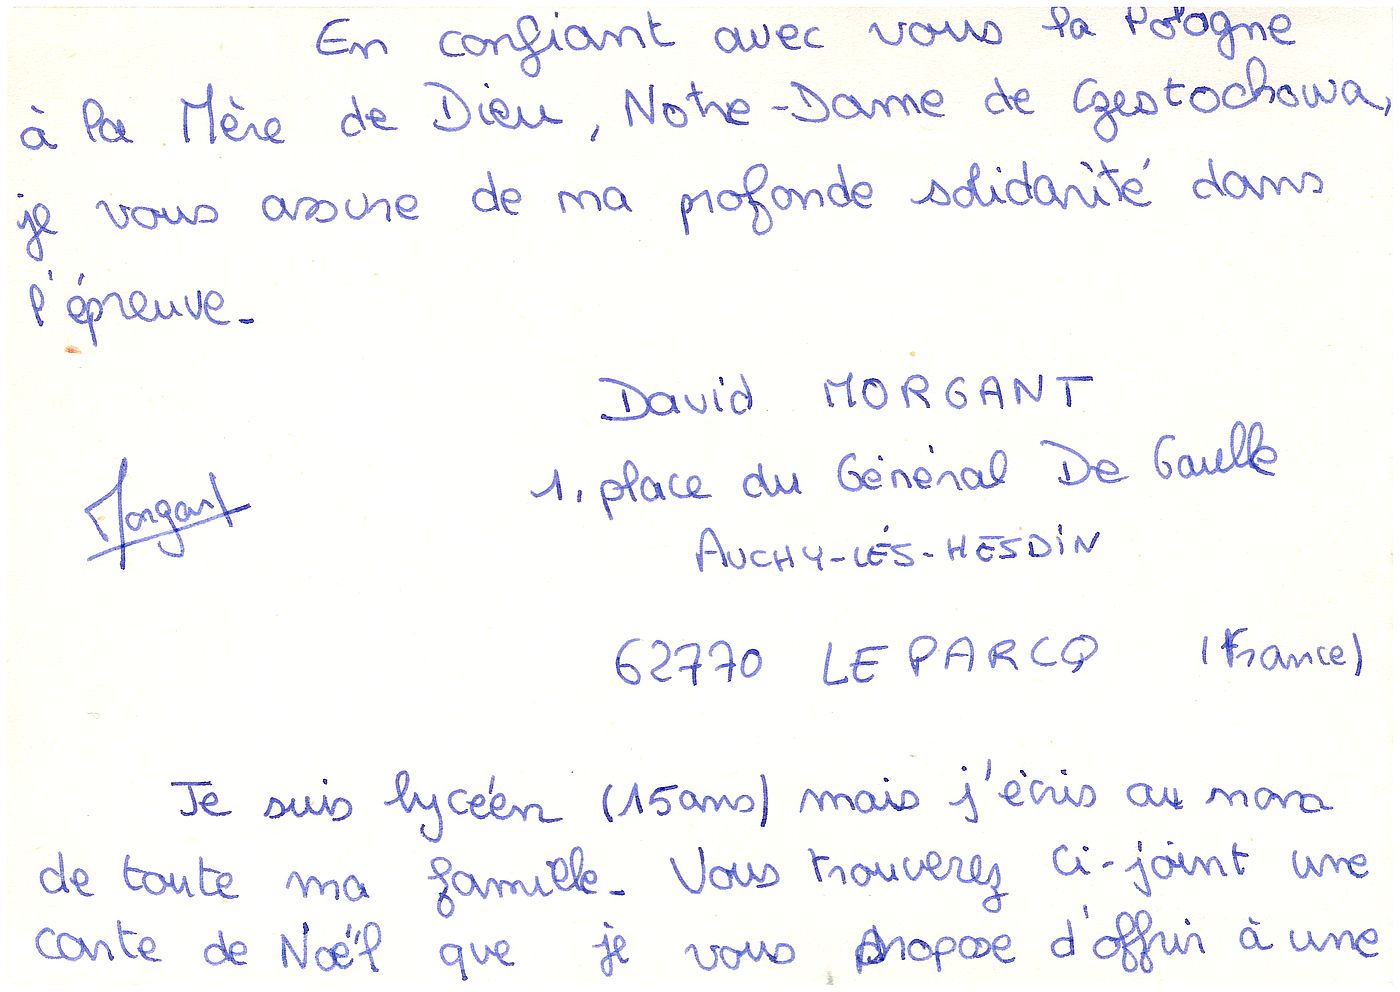 En confiant avec vous la Pologne
à la Mère de Dieu, Notre-Dame de Czestochowa,
je vous assure de ma profonde solidarité dans
l'épreuve-
David MORGANT
1, place du Général De Gaulle
Morgant
AUCHY-LÉS-HESDIN
62770 LE PARCQ (France)
Je suis lycéen (15ans) mais j'écris au nom
de toute ma famille- Vous trouverez ci-joint une
carte de Noël que je vous propose d'offrir à une